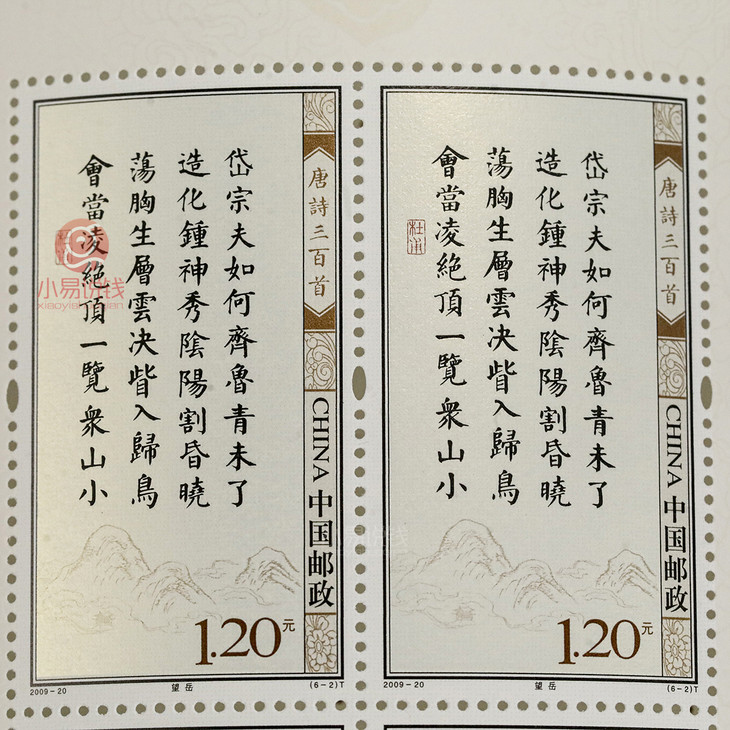 岱宗夫如何齊魯青未了
造化鍾神秀陰陽割昏曉
蕩胸生層雲決眥入歸鳥
會當凌絕頂一覽衆山小
唐詩三百首
CHINA 中国邮政
1.20元
2009-20
望岳
(6-2)T
小易说钱
岱宗夫如何齊魯青未了
造化鍾神秀陰陽割昏曉
蕩胸生層雲決眥入歸鳥
會當凌絕頂一覽衆山小
杜甫
唐詩三百首
CHINA 中国邮政
1.20元
2009-20
望岳
(6-2)T